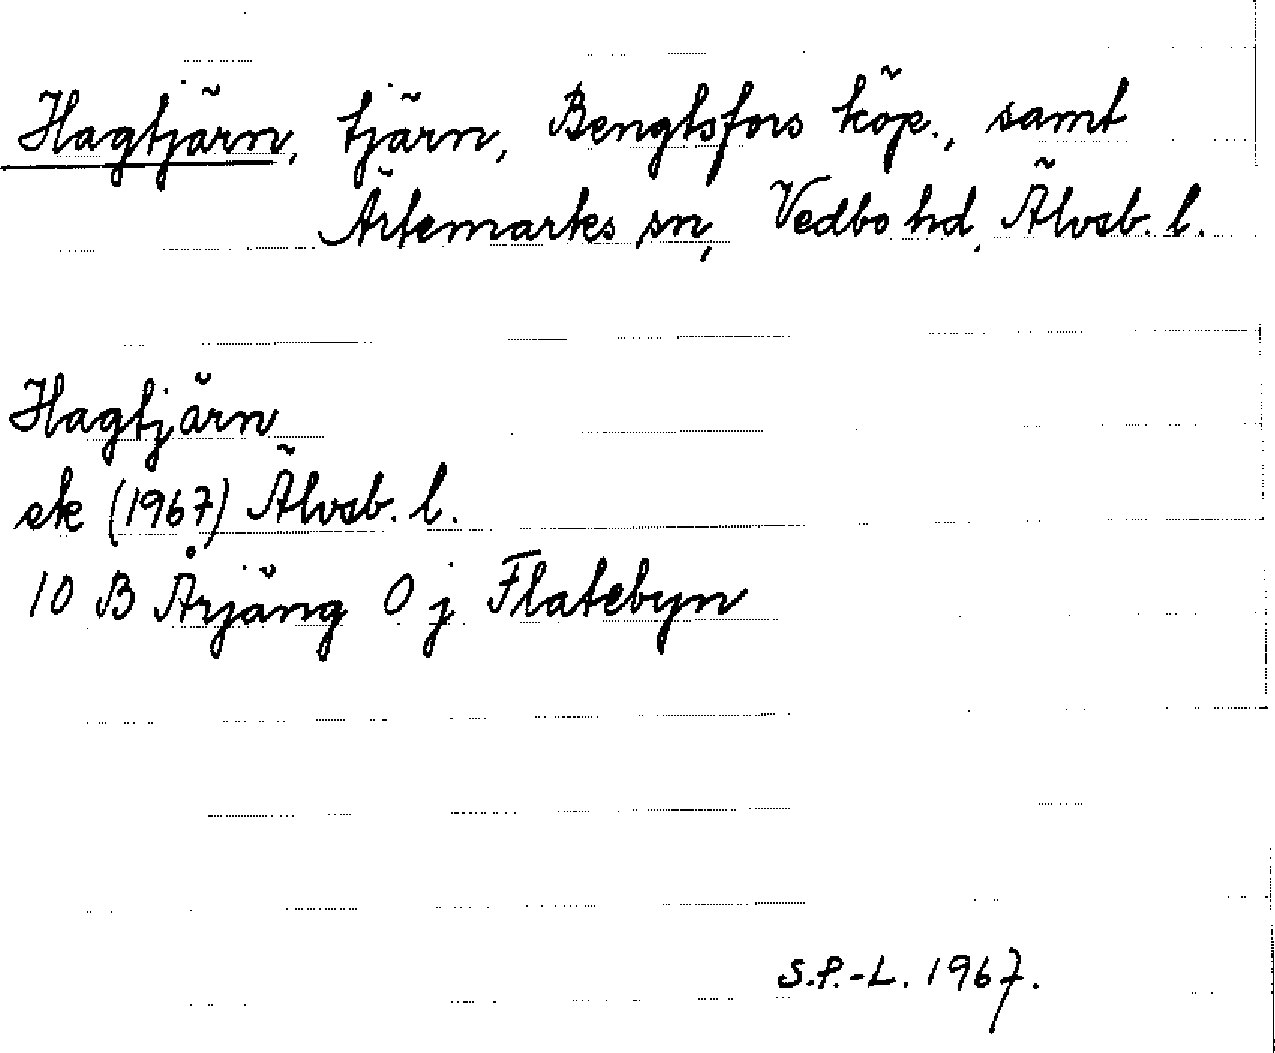 Hagtjärn, tjärn, Bengtsfors köp., samt
Ärtemarks sn, Vedbo hd, Älvsb. l.
Hagtjärn
ek (1967) Älvsb. l.
10 B Årjäng 0 j Flatebyn
S.P.-L. 1967.